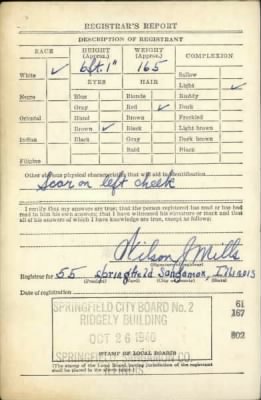 REGISTRAR'S REPORT
DESCRIPTION OF REGISTRANT
RACE HEIGHT (Approx.) WEIGHT (Approx.) COMPLEXION
6ft. 1" 165
White ✓ EYES HAIR Sallow
Light ✓
Negro Blue Blonde Ruddy
Gray Red ✓ Dark
Oriental Hazel Brown Freckled
Brown ✓ Black Light brown
Indian Black Gray Dark brown
Bald Black
Filipino
Other obvious physical characteristics that will aid in identification
Scar on left cheek
I certify that my answers are true; that the person registered has read or has had
read to him his own answers; that I have witnessed his signature or mark and that
all of his answers of which I have knowledge are true, except as follows:
Wilson J Mills
(Signature of registrar)
Registrar for 55 Springfield Sangamon, Illinois
(Precinct) (Ward) (City or county) (State)
Date of registration
SPRINGFIELD CITY BOARD No. 2 61
RIDGELY BUILDING 167
OCT 26 1940 802
SPRINGFIELD, SANGAMON CO.
(STAMP OF LOCAL BOARD)
(The stamp of the Local Board having jurisdiction of the registrant
shall be placed in the above space.)